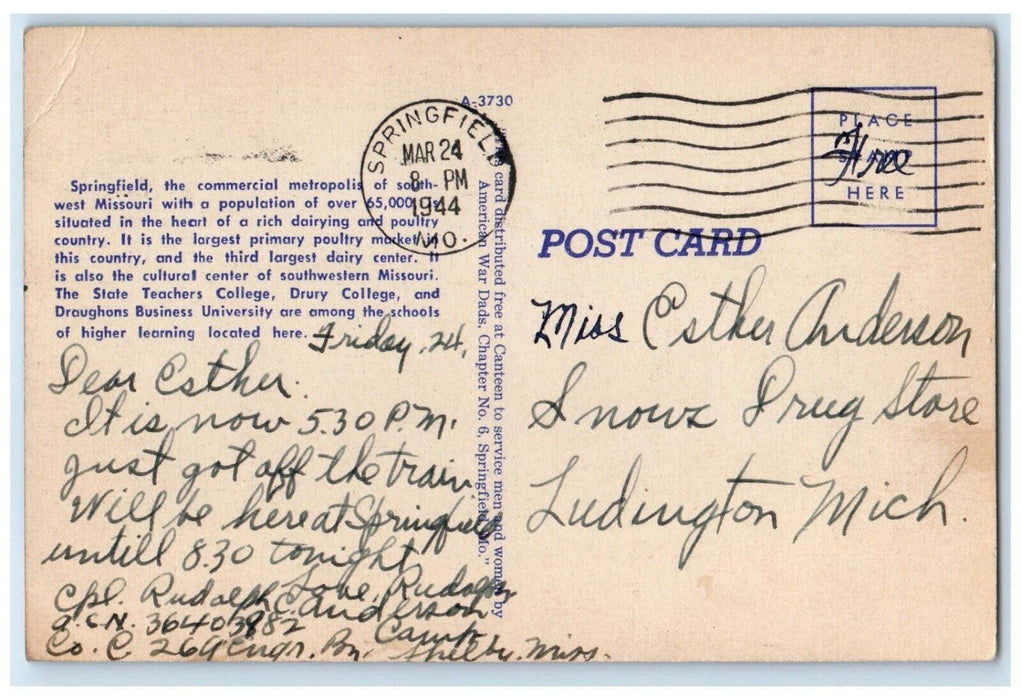 A-3730
SPRINGFIELD
MAR 24
8 PM
1944
MO.
PLACE
Free
HERE
Springfield, the commercial metropolis of south-
west Missouri with a population of over 65,000, is
situated in the heart of a rich dairying and poultry
country. It is the largest primary poultry market in
this country, and the third largest dairy center. It
is also the cultural center of southwestern Missouri.
The State Teachers College, Drury College, and
Draughons Business University are among the schools
of higher learning located here.
card distributed free at Canteen to service men and women by
American War Dads, Chapter No. 6, Springfield, Mo."
POST CARD
Friday, 24,
Dear Esther.
It is now 5.30 P.M.
just got off the train.
Will be here at Springfield
untill 8.30 tonight
Love, Rudolph
Cpl. Rudolph C. Anderson
A.S.N. 36403982
Co. C 269 Engr. Bn. Camp Shelby, Miss.
Miss Esther Anderson
Snows Drug Store
Ludington Mich.